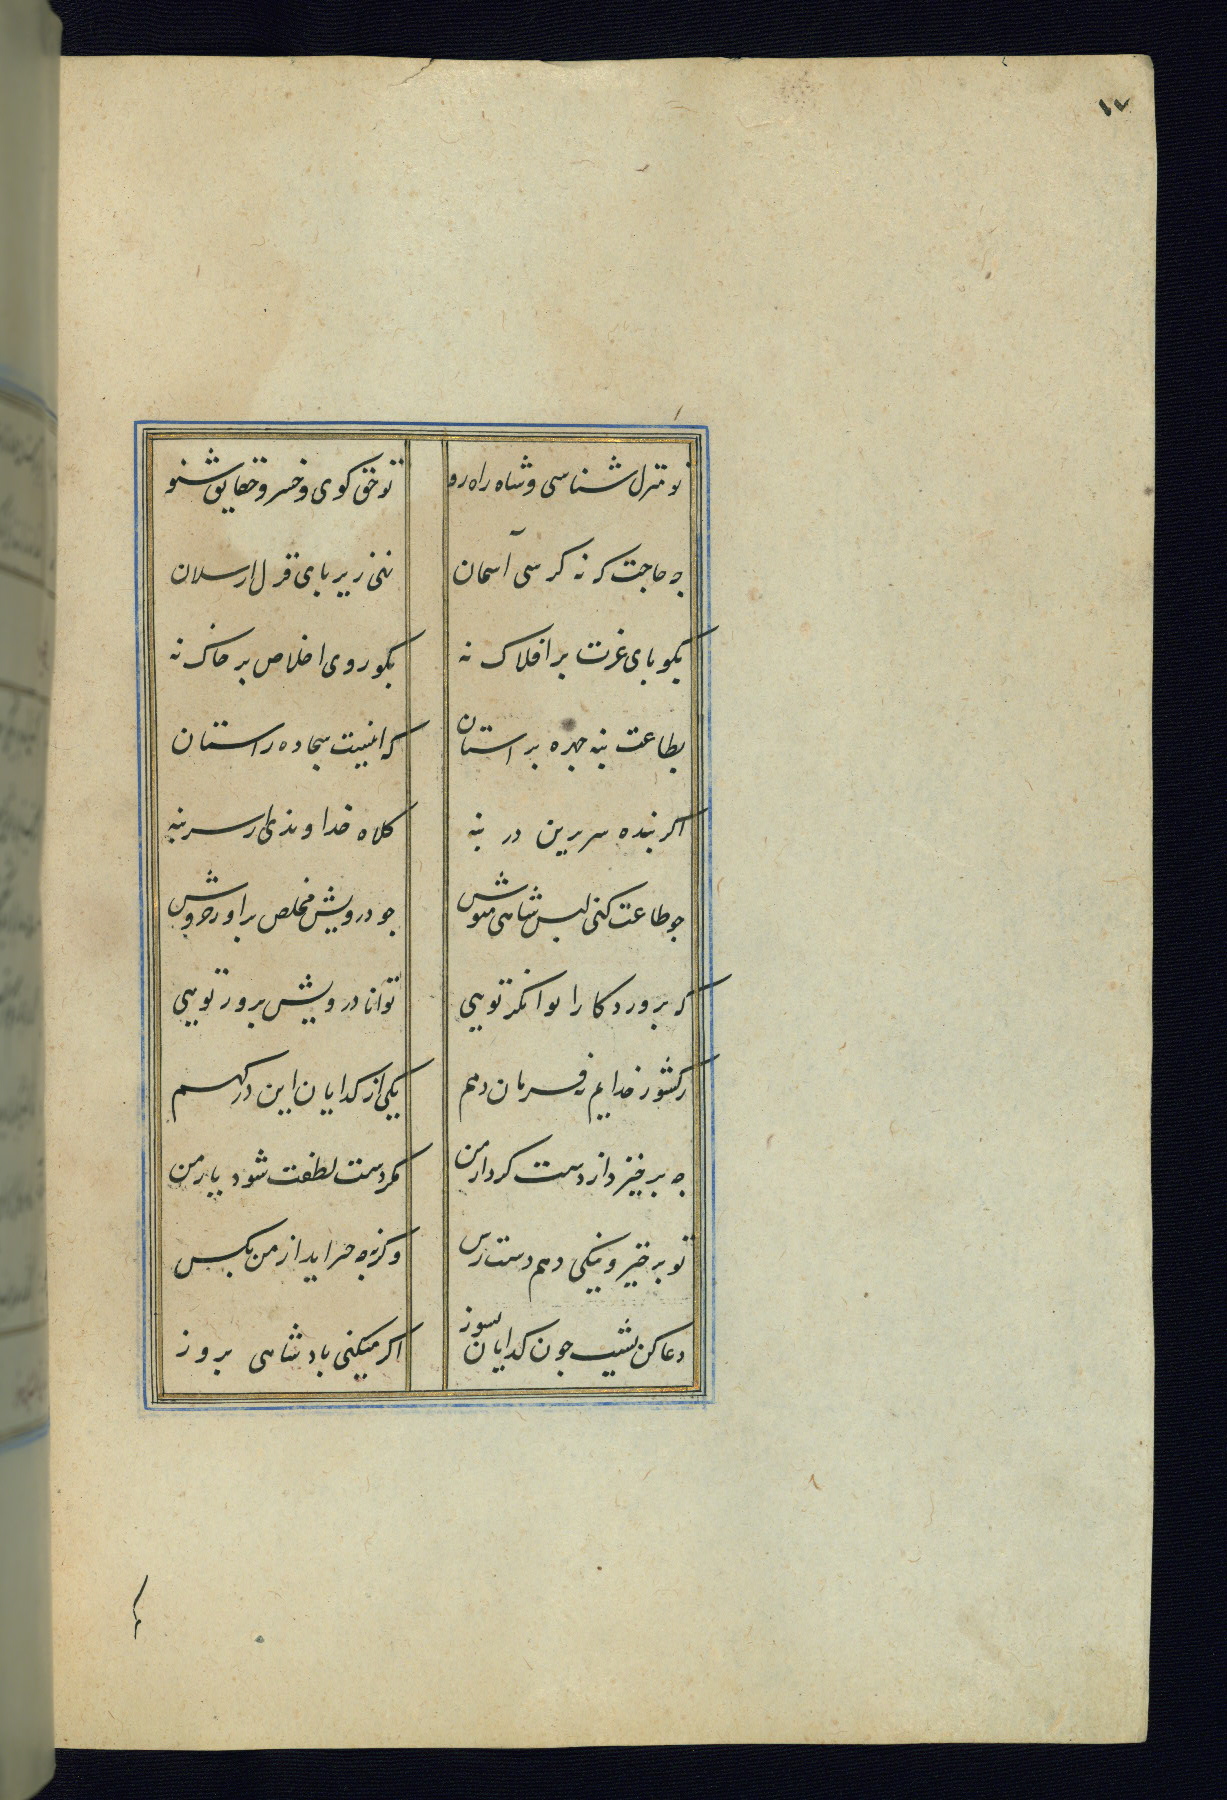 ۱۷
تو منزل شناسی و شاه راه رو
تو حق کوی و خسرو حقایق شنو
چه حاجت که نه کرسی آسمان
نهی زیر بای قزل ارسلان
بکو بای عزت بر افلاک نه
بکو روی اخلاص بر خاک نه
بطاعت بنه جهره بر استان
که اینست سجاده راستان
اکر بنده سر برین در بنه
کلاه خداوندی از سر بنه
جو طاعت کنی لبس شاهی مبوش
جو درویش مخلص براور خروش
که بروردکارا توانکر تویی
توانا درویش برور تویی
نه کشور خدایم نه فرمان دهم
یکی از کدایان این درکهم
چه برخیزد از دست کردار من
مکر دست لطفت شود یار من
تو بر خیر و نیکی دهم دست رس
وکرنه چه خیر اید از من بکس
دعا کن بشب جون کدایان بسوز
اکر میکنی بادشاهی بروز